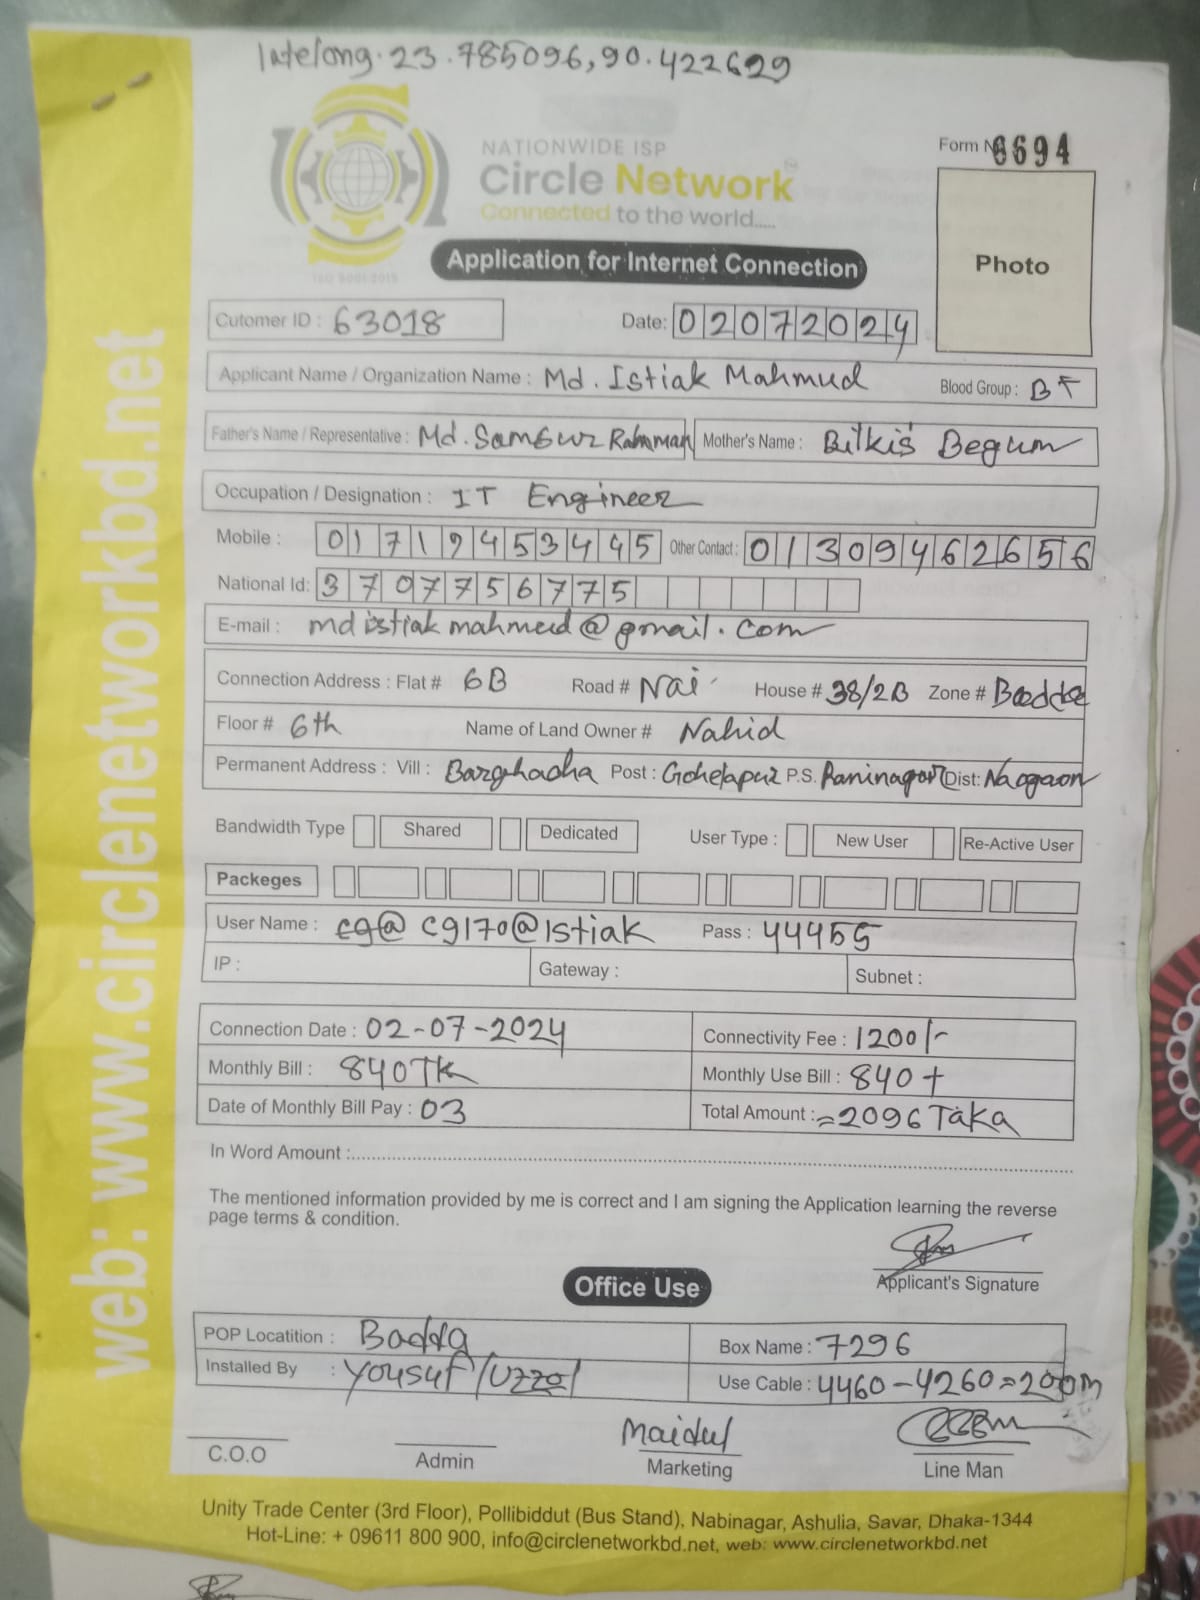 latelong. 23.785096, 90.422629
NATIONWIDE ISP
Circle Network
Connected to the world.....
ISO 9001:2015
Form No 6694
Photo
Application for Internet Connection
Cutomer ID : 63018 Date: 02072024
Applicant Name / Organization Name : Md. Istiak Mahmud Blood Group : B+
Father's Name / Representative : Md. Samsur Rahman Mother's Name : Bilkis Begum
Occupation / Designation : IT Engineer
Mobile : 01719453445 Other Contact : 01309462656
National Id: 3707756775
E-mail : mdistiakmahmud@gmail.com
Connection Address : Flat # 6B Road # Nai House # 38/2B Zone # Badda
Floor # 6th Name of Land Owner # Nahid
Permanent Address : Vill : Bargphacha Post : Gohelapur P.S. Raninagar Dist: Naogaon
Bandwidth Type Shared Dedicated User Type : New User Re-Active User
Packeges
User Name : cg@ cg170@Istiak Pass : 44455
IP : Gateway : Subnet :
Connection Date : 02-07-2024 Connectivity Fee : 1200/-
Monthly Bill : 840TK Monthly Use Bill : 840+
Date of Monthly Bill Pay : 03 Total Amount : =2096 Taka
In Word Amount :
The mentioned information provided by me is correct and I am signing the Application learning the reverse
page terms & condition.
Applicant's Signature
Office Use
POP Locatition : Badda Box Name : 7296
Installed By : Yousuf/Uzzal Use Cable : 4460-4260=200m
Maidul
C.O.O Admin Marketing Line Man
Unity Trade Center (3rd Floor), Pollibiddut (Bus Stand), Nabinagar, Ashulia, Savar, Dhaka-1344
Hot-Line: + 09611 800 900, info@circlenetworkbd.net, web: www.circlenetworkbd.net
web: www.circlenetworkbd.net